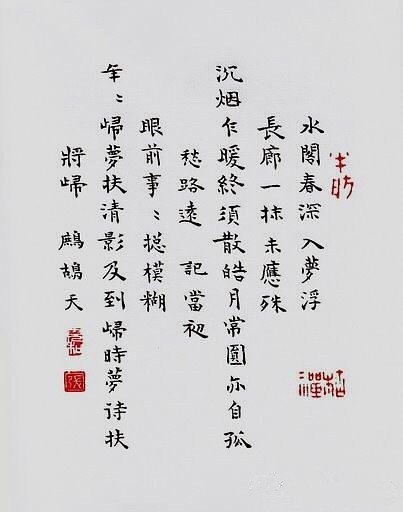 水閣春深入夢浮
長廊一抹未應殊
沉烟乍暖終須散皓月常圓亦自孤
愁路遠 記當初
眼前事〻揔模糊
年〻歸夢扶清影及到歸時夢待扶
將歸 鷓鴣天